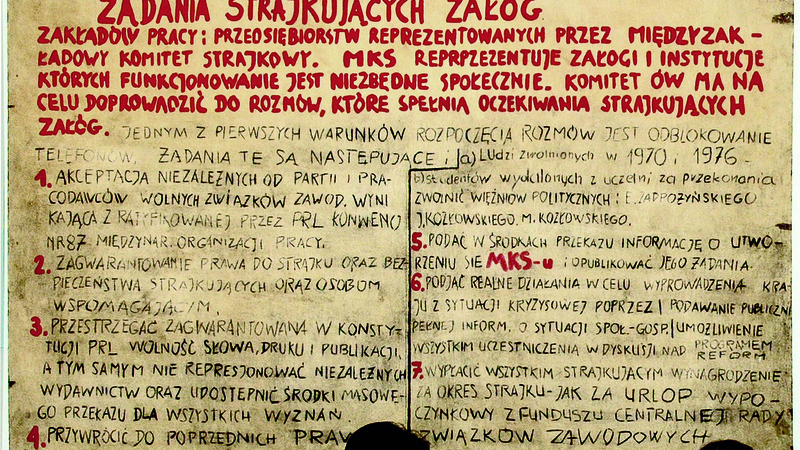 ŻĄDANIA STRAJKUJĄCYCH ZAŁÓG
ZAKŁADÓW PRACY I PRZEDSIĘBIORSTW REPREZENTOWANYCH PRZEZ MIĘDZYZAK-
ŁADOWY KOMITET STRAJKOWY. MKS REPRPZEZENTUJE ZAŁOGI I INSTYTUCJE
KTÓRYCH FUNKCJONOWANIE JEST NIEZBĘDNE SPOŁECZNIE. KOMITET ÓW MA NA
CELU DOPROWADZIĆ DO ROZMÓW, KTÓRE SPEŁNIĄ OCZEKIWANIA STRAJKUJĄCYCH
ZAŁÓG. JEDNYM Z PIERWSZYCH WARUNKÓW ROZPOCZĘCIA ROZMÓW JEST ODBLOKOWANIE
TELEFONÓW. ŻĄDANIA TE SĄ NASTĘPUJĄCE:
1. AKCEPTACJA NIEZALEŻNYCH OD PARTII I PRA-
CODAWCÓW WOLNYCH ZWIĄZKÓW ZAWOD. WYNI
KAJĄCA Z RATYFIKOWANEJ PRZEZ PRL KONWENCJI
NR 87 MIĘDZYNAR. ORGANIZACJI PRACY.
2. ZAGWARANTOWANIE PRAWA DO STRAJKU ORAZ BEZ-
PIECZEŃSTWA STRAJKUJĄCYCH ORAZ OSOBOM
WSPOMAGAJĄCYM.
3. PRZESTRZEGAĆ ZAGWARANTOWANĄ W KONSTY-
TUCJI PRL WOLNOŚĆ SŁOWA, DRUKU I PUBLIKACJI,
A TYM SAMYM NIE REPRESJONOWAĆ NIEZALEŻNYCH
WYDAWNICTW ORAZ UDOSTĘPNIĆ ŚRODKI MASOWE-
GO PRZEKAZU DLA WSZYSTKICH WYZNAŃ.
4. PRZYWRÓCIĆ DO POPRZEDNICH PRAW
a) Ludzi zwolnionych w 1970 i 1976 -
b) studentów wydalonych z uczelni za przekonania
ZWOLNIĆ WIĘŹNIÓW POLITYCZNYCH: E. ZADROŻYŃSKIEGO
J. KOZŁOWSKIEGO. M. KOZŁOWSKIEGO.
5. PODAĆ W ŚRODKACH PRZEKAZU INFORMACJĘ O UTWO-
RZENIU SIĘ MKS-u I OPUBLIKOWAĆ JEGO ŻĄDANIA.
6. PODJĄĆ REALNE DZIAŁANIA W CELU WYPROWADZENIA KRA-
JU Z SYTUACJI KRYZYSOWEJ POPRZEZ: PODAWANIE PUBLICZNI
PEŁNEJ INFORM. O SYTUACJI SPOŁ-GOSP. UMOŻLIWIENIE
WSZYSTKIM UCZESTNICZENIA W DYSKUSJI NAD PROGRAMEM
REFORM
7. WYPŁACIĆ WSZYSTKIM STRAJKUJĄCYM WYNAGRODZENIE
ZA OKRES STRAJKU-JAK ZA URLOP WYPO-
CZYNKOWY Z FUNDUSZU CENTRALNEJ RADY
ZWIĄZKÓW ZAWODOWYCH